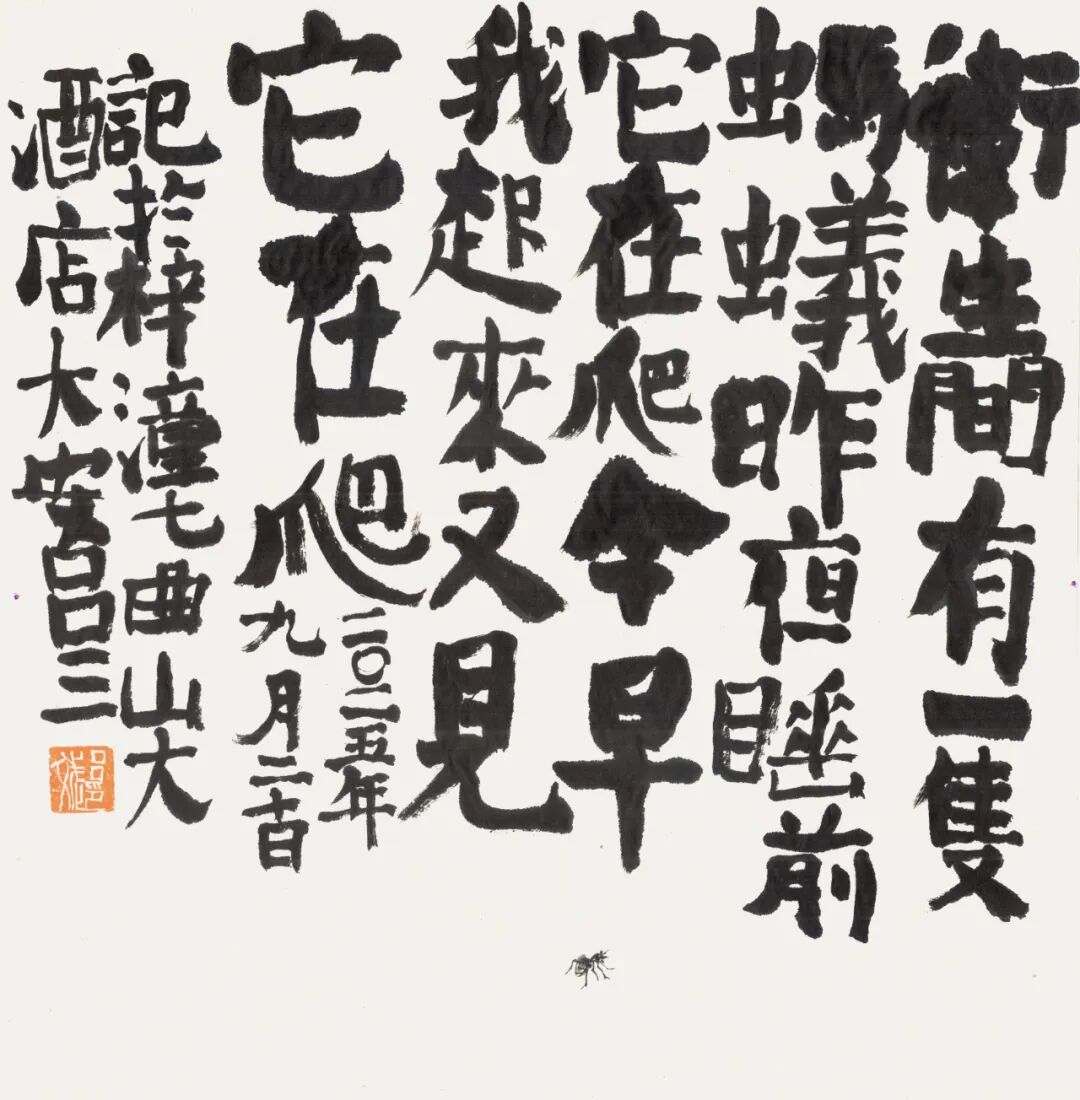 衛生間有一隻
螞蟻昨夜睡前
它在爬今早
我起來又見
它在爬
二〇二五年
九月二十日
記於梓潼七曲山大
酒店大三